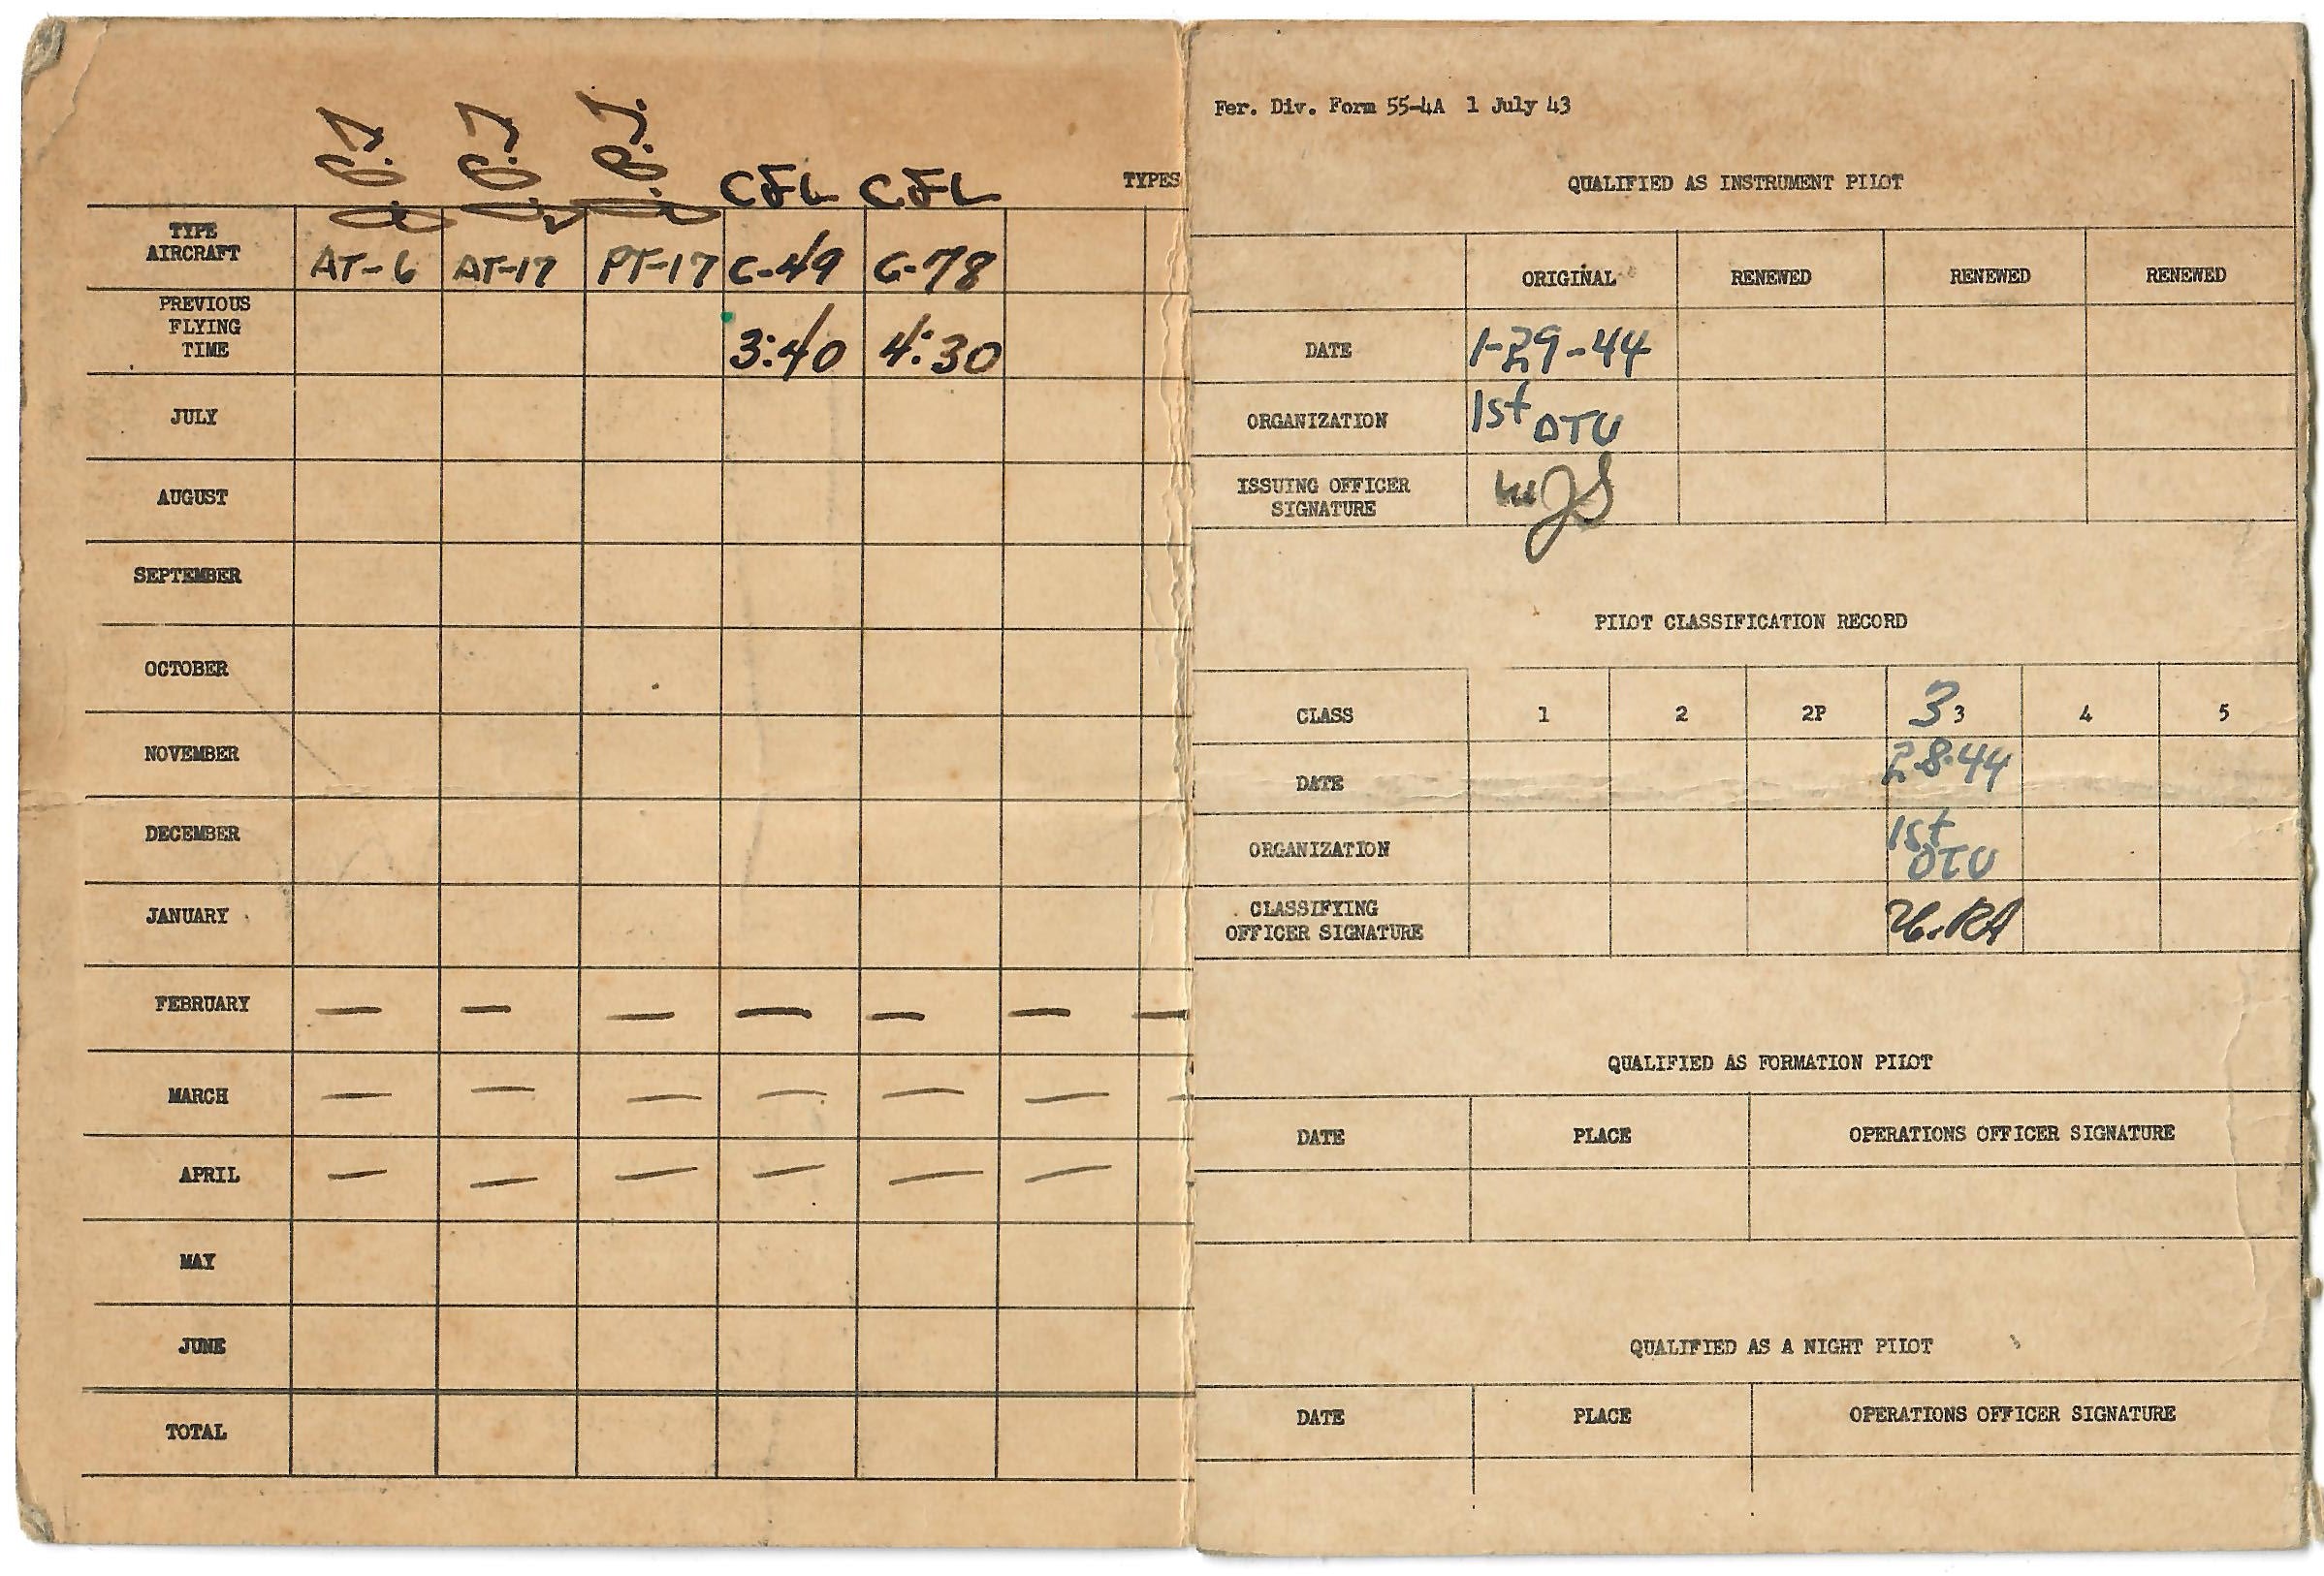 CFL CFL TYPES
TYPE AIRCRAFT AT-6 AT-17 PT-17 C-49 C-78
PREVIOUS FLYING TIME 3:40 4:30
JULY
AUGUST
SEPTEMBER
OCTOBER
NOVEMBER
DECEMBER
JANUARY
FEBRUARY — — — — — — —
MARCH — — — — — — —
APRIL — — — — — —
MAY
JUNE
TOTAL
Fer. Div. Form 55-4A 1 July 43
QUALIFIED AS INSTRUMENT PILOT
ORIGINAL RENEWED RENEWED RENEWED
DATE 1-29-44
ORGANIZATION 1st OTU
ISSUING OFFICER
SIGNATURE
PILOT CLASSIFICATION RECORD
CLASS 1 2 2P 3 3 4 5
DATE 2-8-44
ORGANIZATION 1st OTU
CLASSIFYING
OFFICER SIGNATURE
QUALIFIED AS FORMATION PILOT
DATE PLACE OPERATIONS OFFICER SIGNATURE
QUALIFIED AS A NIGHT PILOT
DATE PLACE OPERATIONS OFFICER SIGNATURE